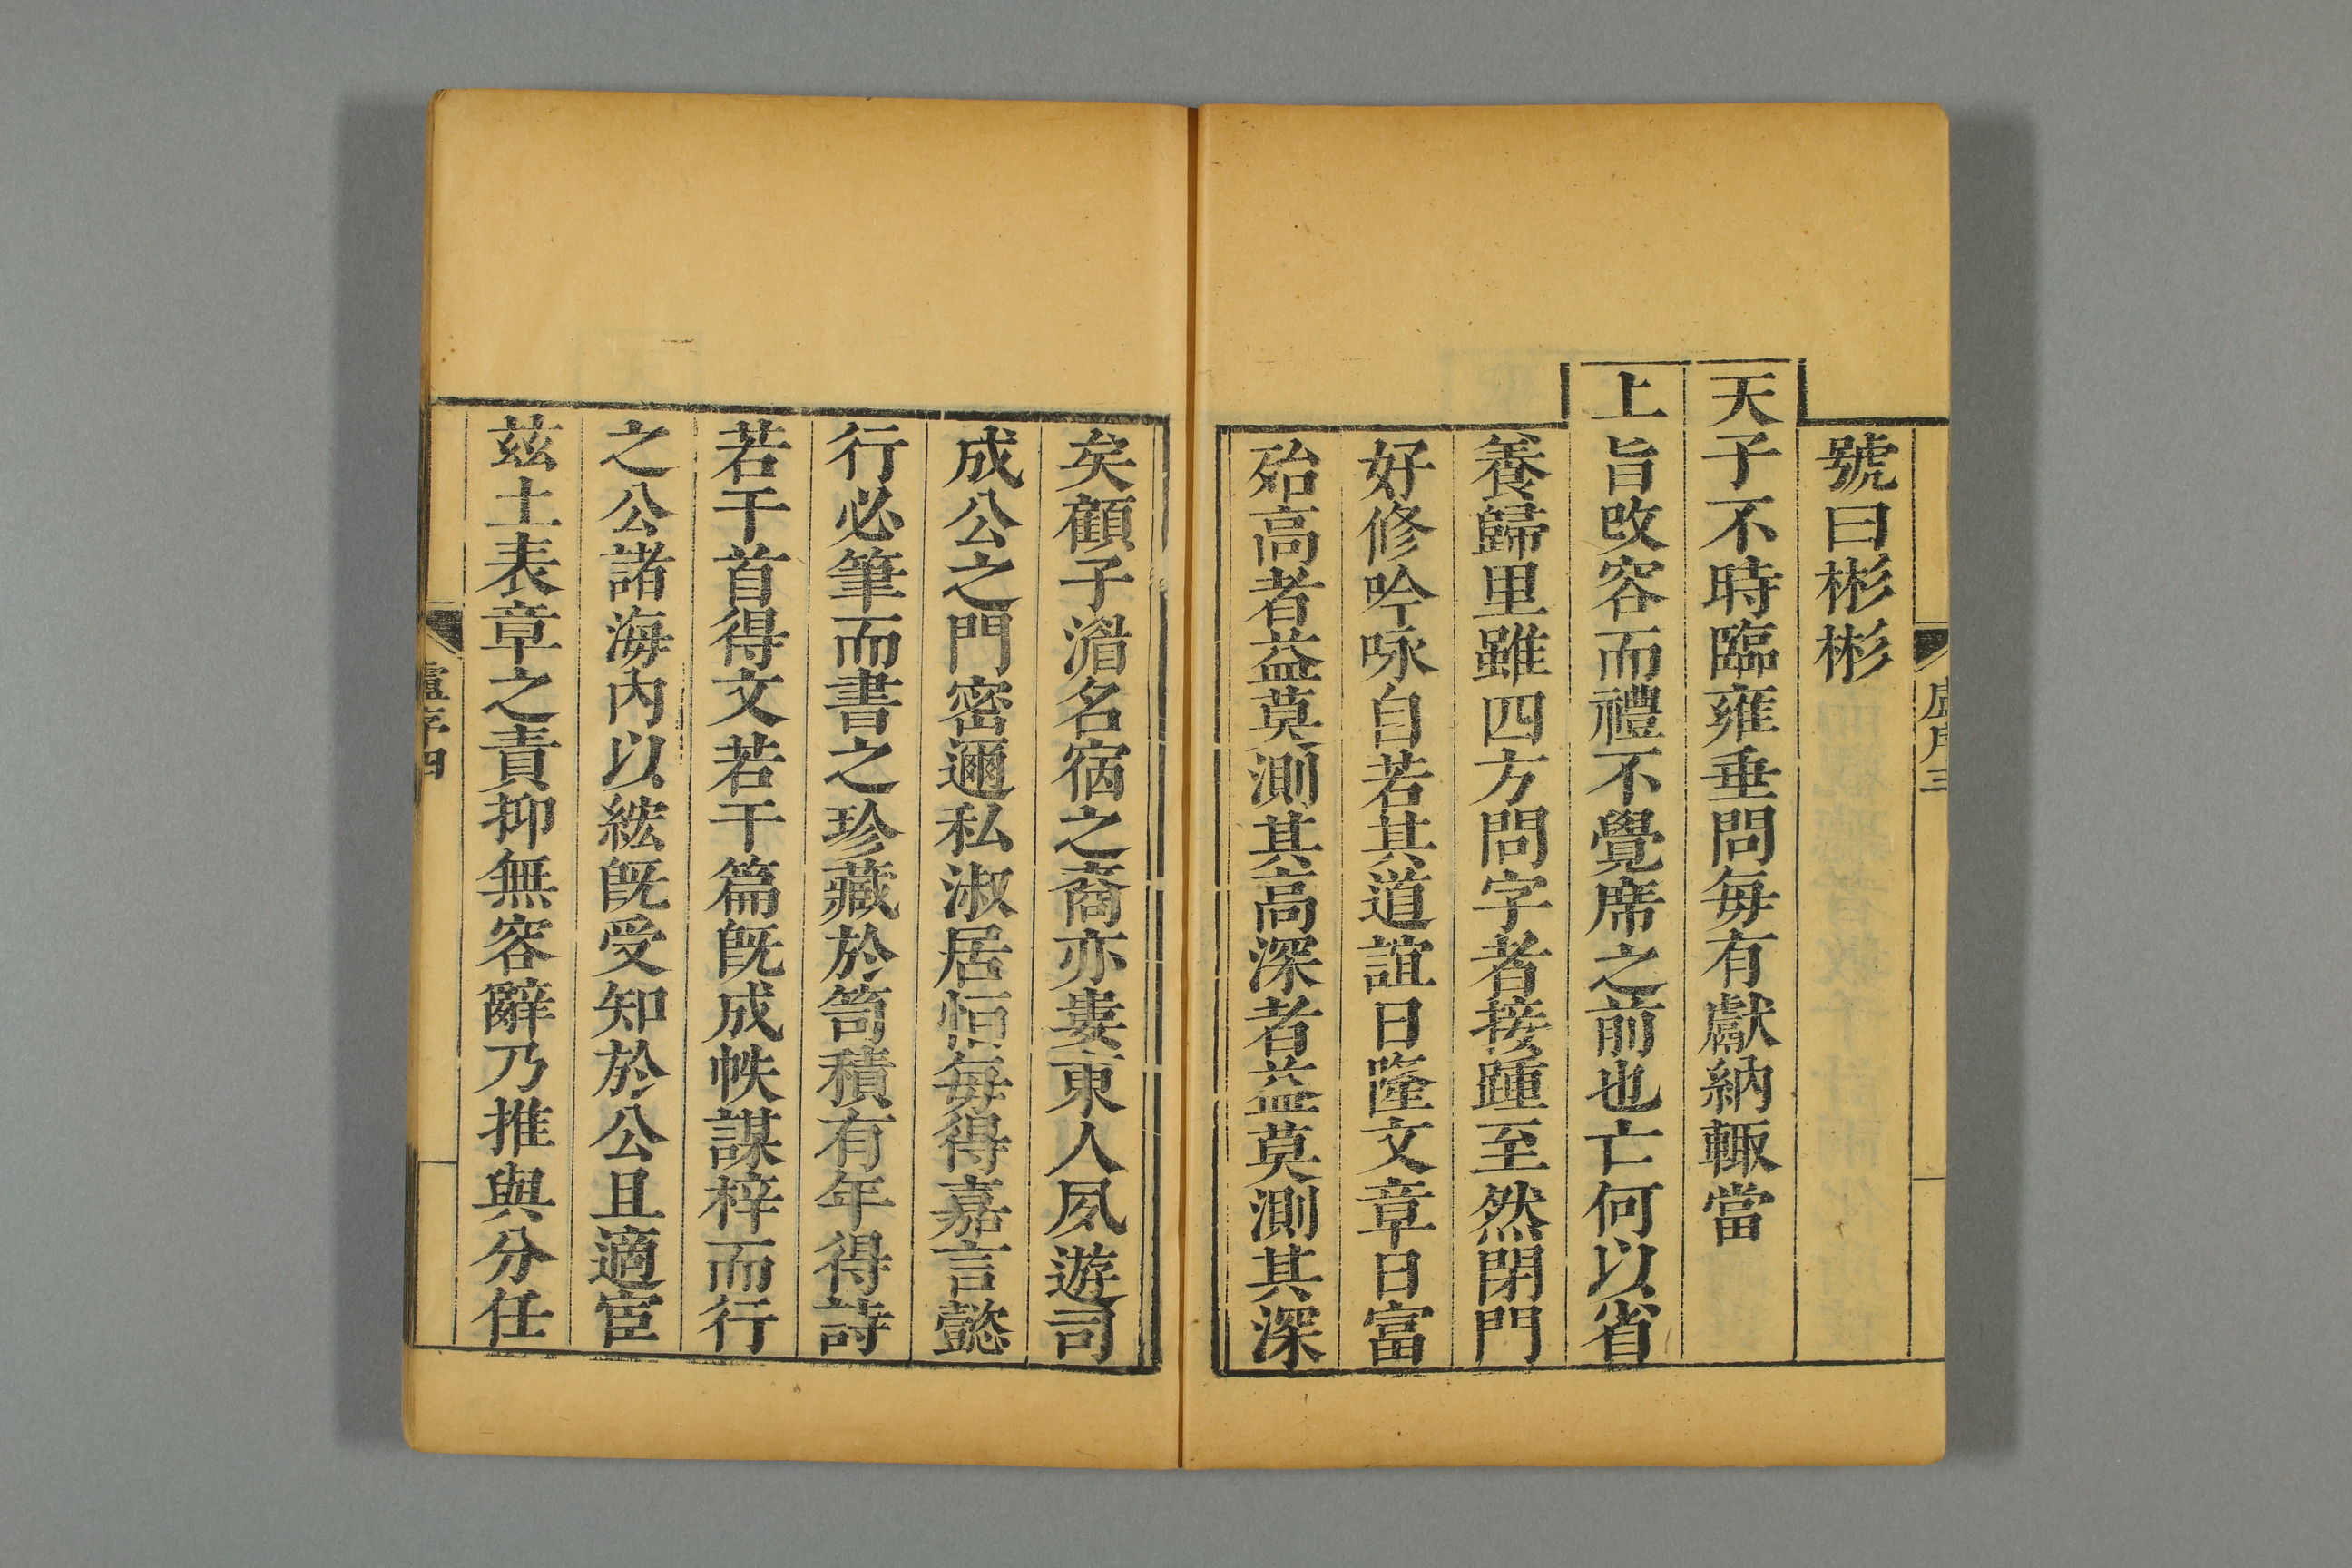 號曰彬彬
天子不時臨雍垂問每有獻納輒當
上旨改容而禮不覺席之前也亡何以省
養歸里雖四方問字者接踵至然閉門
好修吟咏自若其道誼日隆文章日富
殆高者益莫測其高深者益莫測其深
矣顧子湄名宿之裔亦婁東人夙遊司
成公之門密邇私淑居恒每得嘉言懿
行必筆而書之珍藏於笥積有年得詩
若干首得文若干篇既成帙謀梓而行
之公諸海內以紘既受知於公且適宦
茲土表章之責抑無容辭乃推與分任
盧序三
盧序四